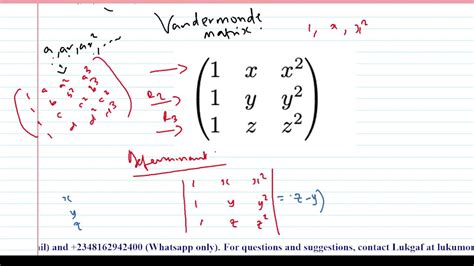 Vandermonde
matrix.
a, ar, ar², ....
1, x, x²
1 a a² a³
1 b b² b³
1 c c² c³
1 d d² d³
R2
R3
1 x x²
1 y y²
1 z z²
Determinant.
x
y
z
1 x x²
1 y y²
1 z z²
= z - y)
ail) and +2348162942400 (Whatsapp only). For questions and suggestions, contact Lukgaf at lukumor